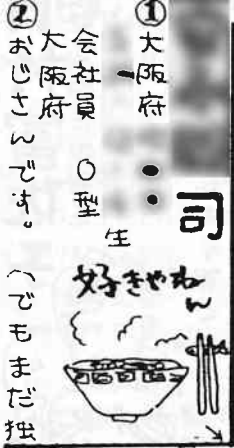 司
①大阪府
生
会社員 O型
大阪府
②おじさんです。(でもまだ独
好きやねん